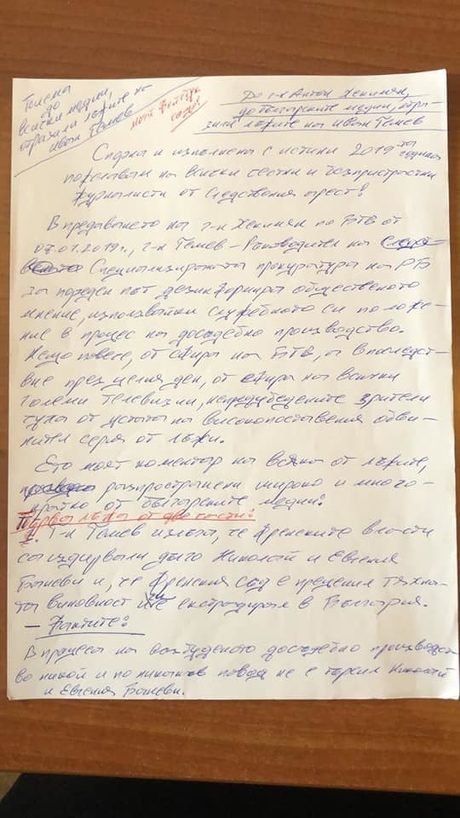 До
всички медии,
отразили лъжите на
Иван Гешев
До г-н Антон Хекимян,
до българските медии, отра-
зили лъжите на Иван Гешев
Спорна и изпълнена с истини 2019-та година
пожелавам на всички честни и безпристрастни
журналисти от следствения арест!
В предаването на г-н Хекимян по БТВ от
07.01.2019г., г-н Гешев – Ръководител на
Специализираната прокуратура на РБ
за пореден път дезинформира общественото
мнение, използвайки служебното си положе-
ние в процес на досъдебно производство.
Нещо повече, от ефира на БТВ, а впоследст-
вие през целия ден, от ефира на всички
големи телевизии, непредубедените зрители
чуха от устата на високопоставения обви-
нител серия от лъжи.
Ето моят коментар на всяка от лъжите,
разпространени широко и много-
кратно от българските медии:
Първа лъжа от две части:
1. Г-н Гешев излъга, че френските власти
са издирвали дълго Николай и Евгения
Баневи и, че френския съд е преценил тяхна-
та виновност и ще екстрадира в България.
– Фактите:
В процеса на възбуденото досъдебно производст-
во никой и по никакъв повод не е търсил Николай
и Евгения Баневи.